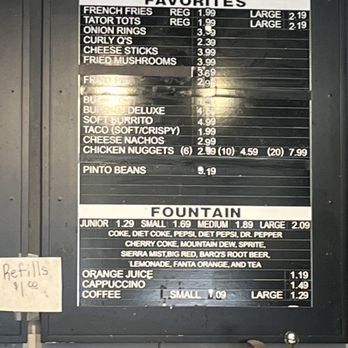 FAVORITES
FRENCH FRIES REG 1.99 LARGE 2.19
TATOR TOTS REG 1.99 LARGE 2.19
ONION RINGS
CURLY Q'S 2.39
CHEESE STICKS 3.99
FRIED MUSHROOMS 3.99
SOFT BURRITO 4.99
TACO (SOFT/CRISPY) 1.99
CHEESE NACHOS 2.99
CHICKEN NUGGETS (6) 2.99 (10) 4.59 (20) 7.99
PINTO BEANS
FOUNTAIN
JUNIOR 1.29 SMALL 1.69 MEDIUM 1.89 LARGE 2.09
COKE, DIET COKE, PEPSI, DIET PEPSI, DR. PEPPER
CHERRY COKE, MOUNTAIN DEW, SPRITE,
SIERRA MIST, BIG RED, BARQ'S ROOT BEER,
LEMONADE, FANTA ORANGE, AND TEA
ORANGE JUICE 1.19
CAPPUCCINO 1.49
COFFEE SMALL LARGE 1.29
Refills
$1.00